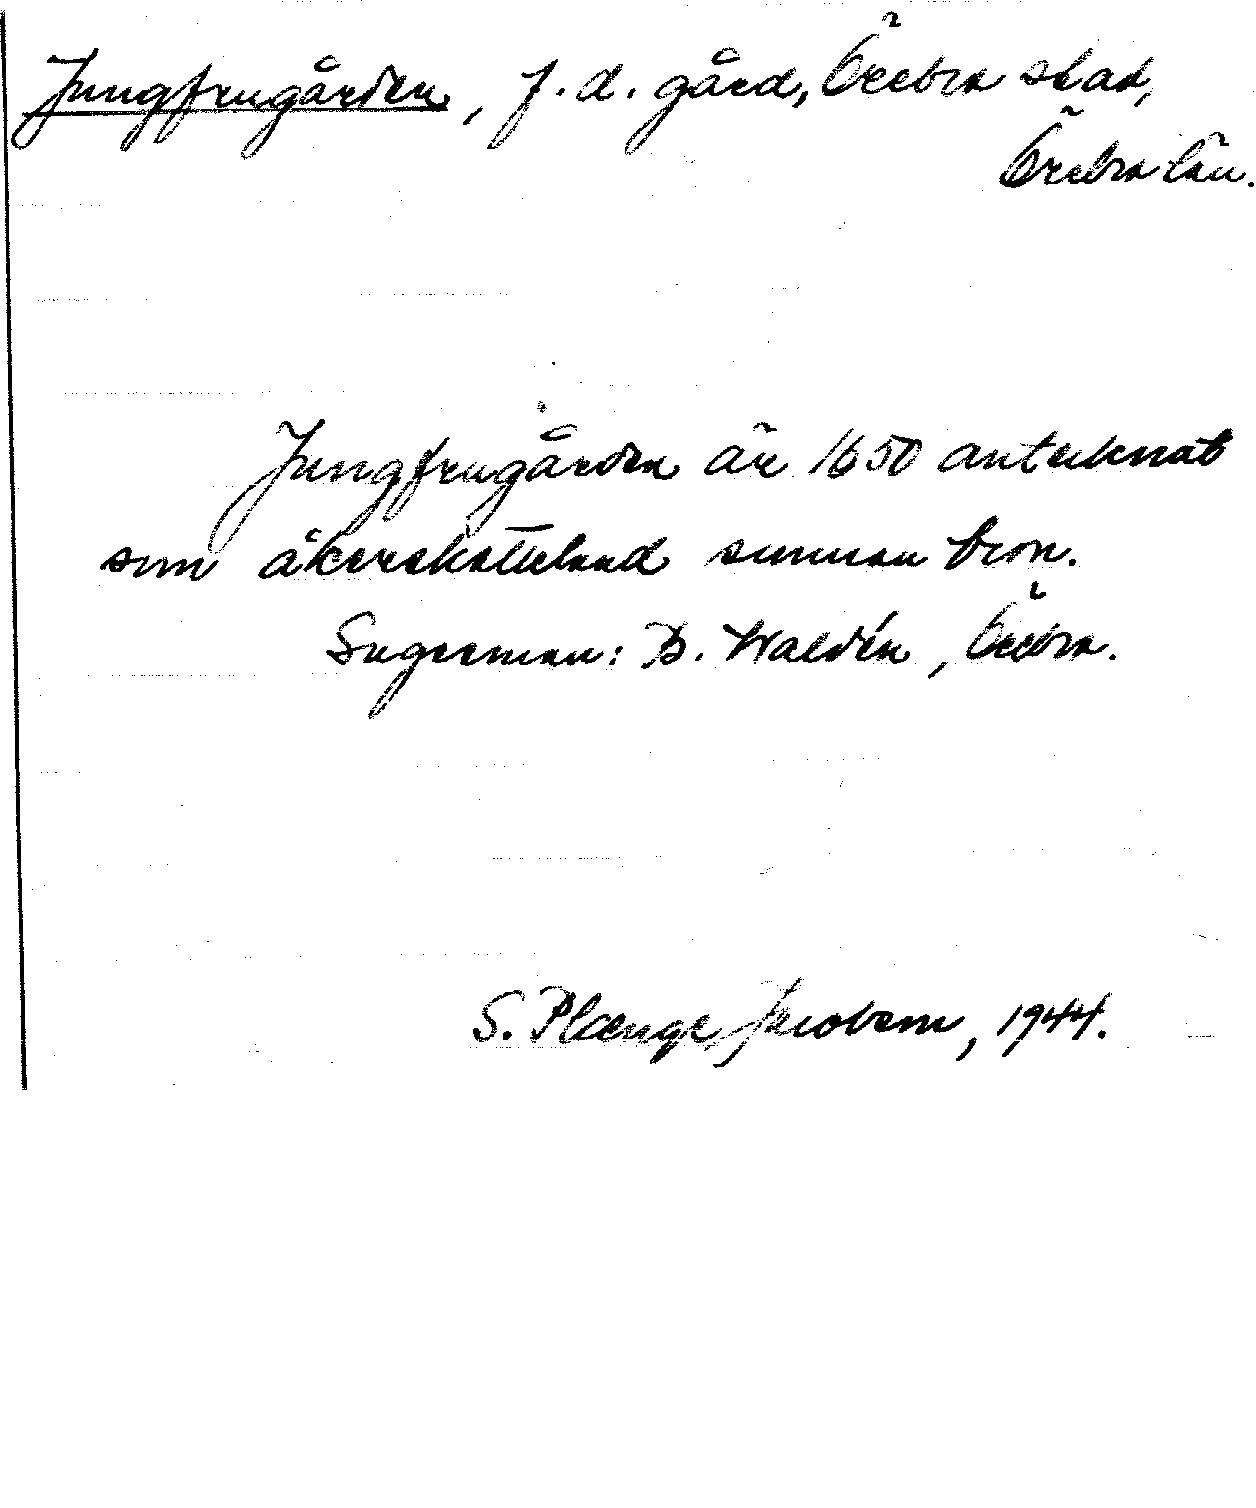 Jungfrugården, f. d. gård, Örebro stad,
Örebro län.
Jungfrugården är 1650 antecknat
som åkerskatteland sunnan bron.
Sagesman: B. Waldén, Örebro.
S. Plænge Jacobson, 1944.